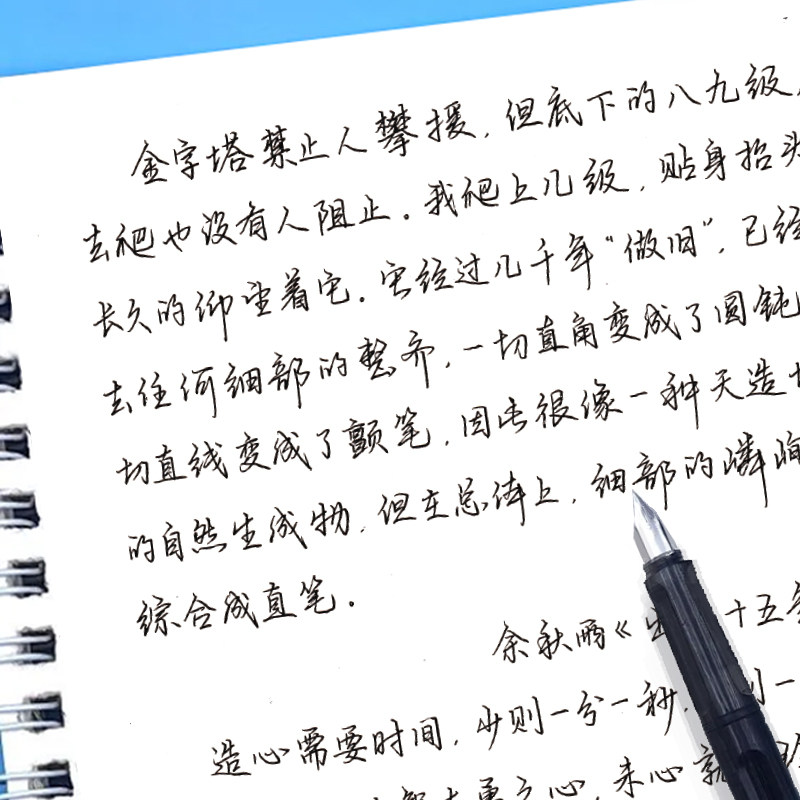 金字塔禁止人攀援,但底下的八九级,
去爬也没有人阻止。我爬上几级,贴身抬头
长久的仰望着它。它经过几千年“做旧”,已经
去任何细部的整齐,一切直角变成了圆钝
切直线变成了颤笔,因此很像一种天造
的自然生成物,但在总体上,细部的嶙峋
综合成直笔。
余秋雨《出 十五年
造心需要时间,少则一分一秒, 则一
勇之心,朱心就